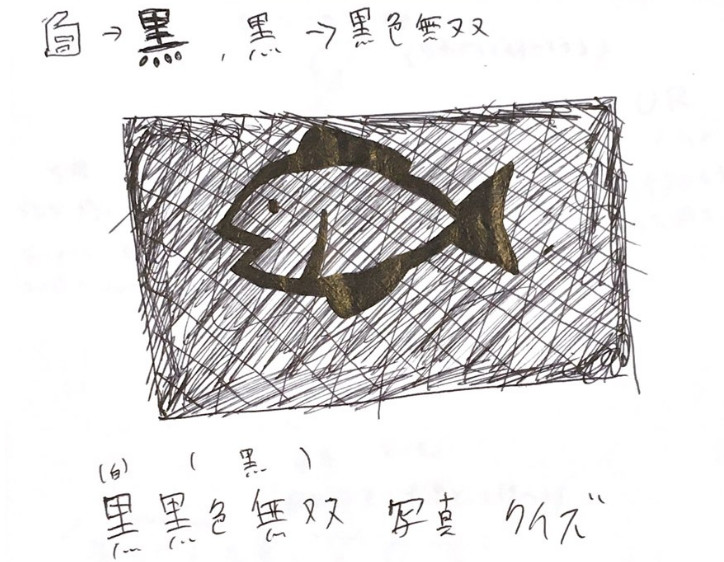 白→黒, 黒→黒色無双
(白) (黒)
黒黒色無双 写真 クイズ